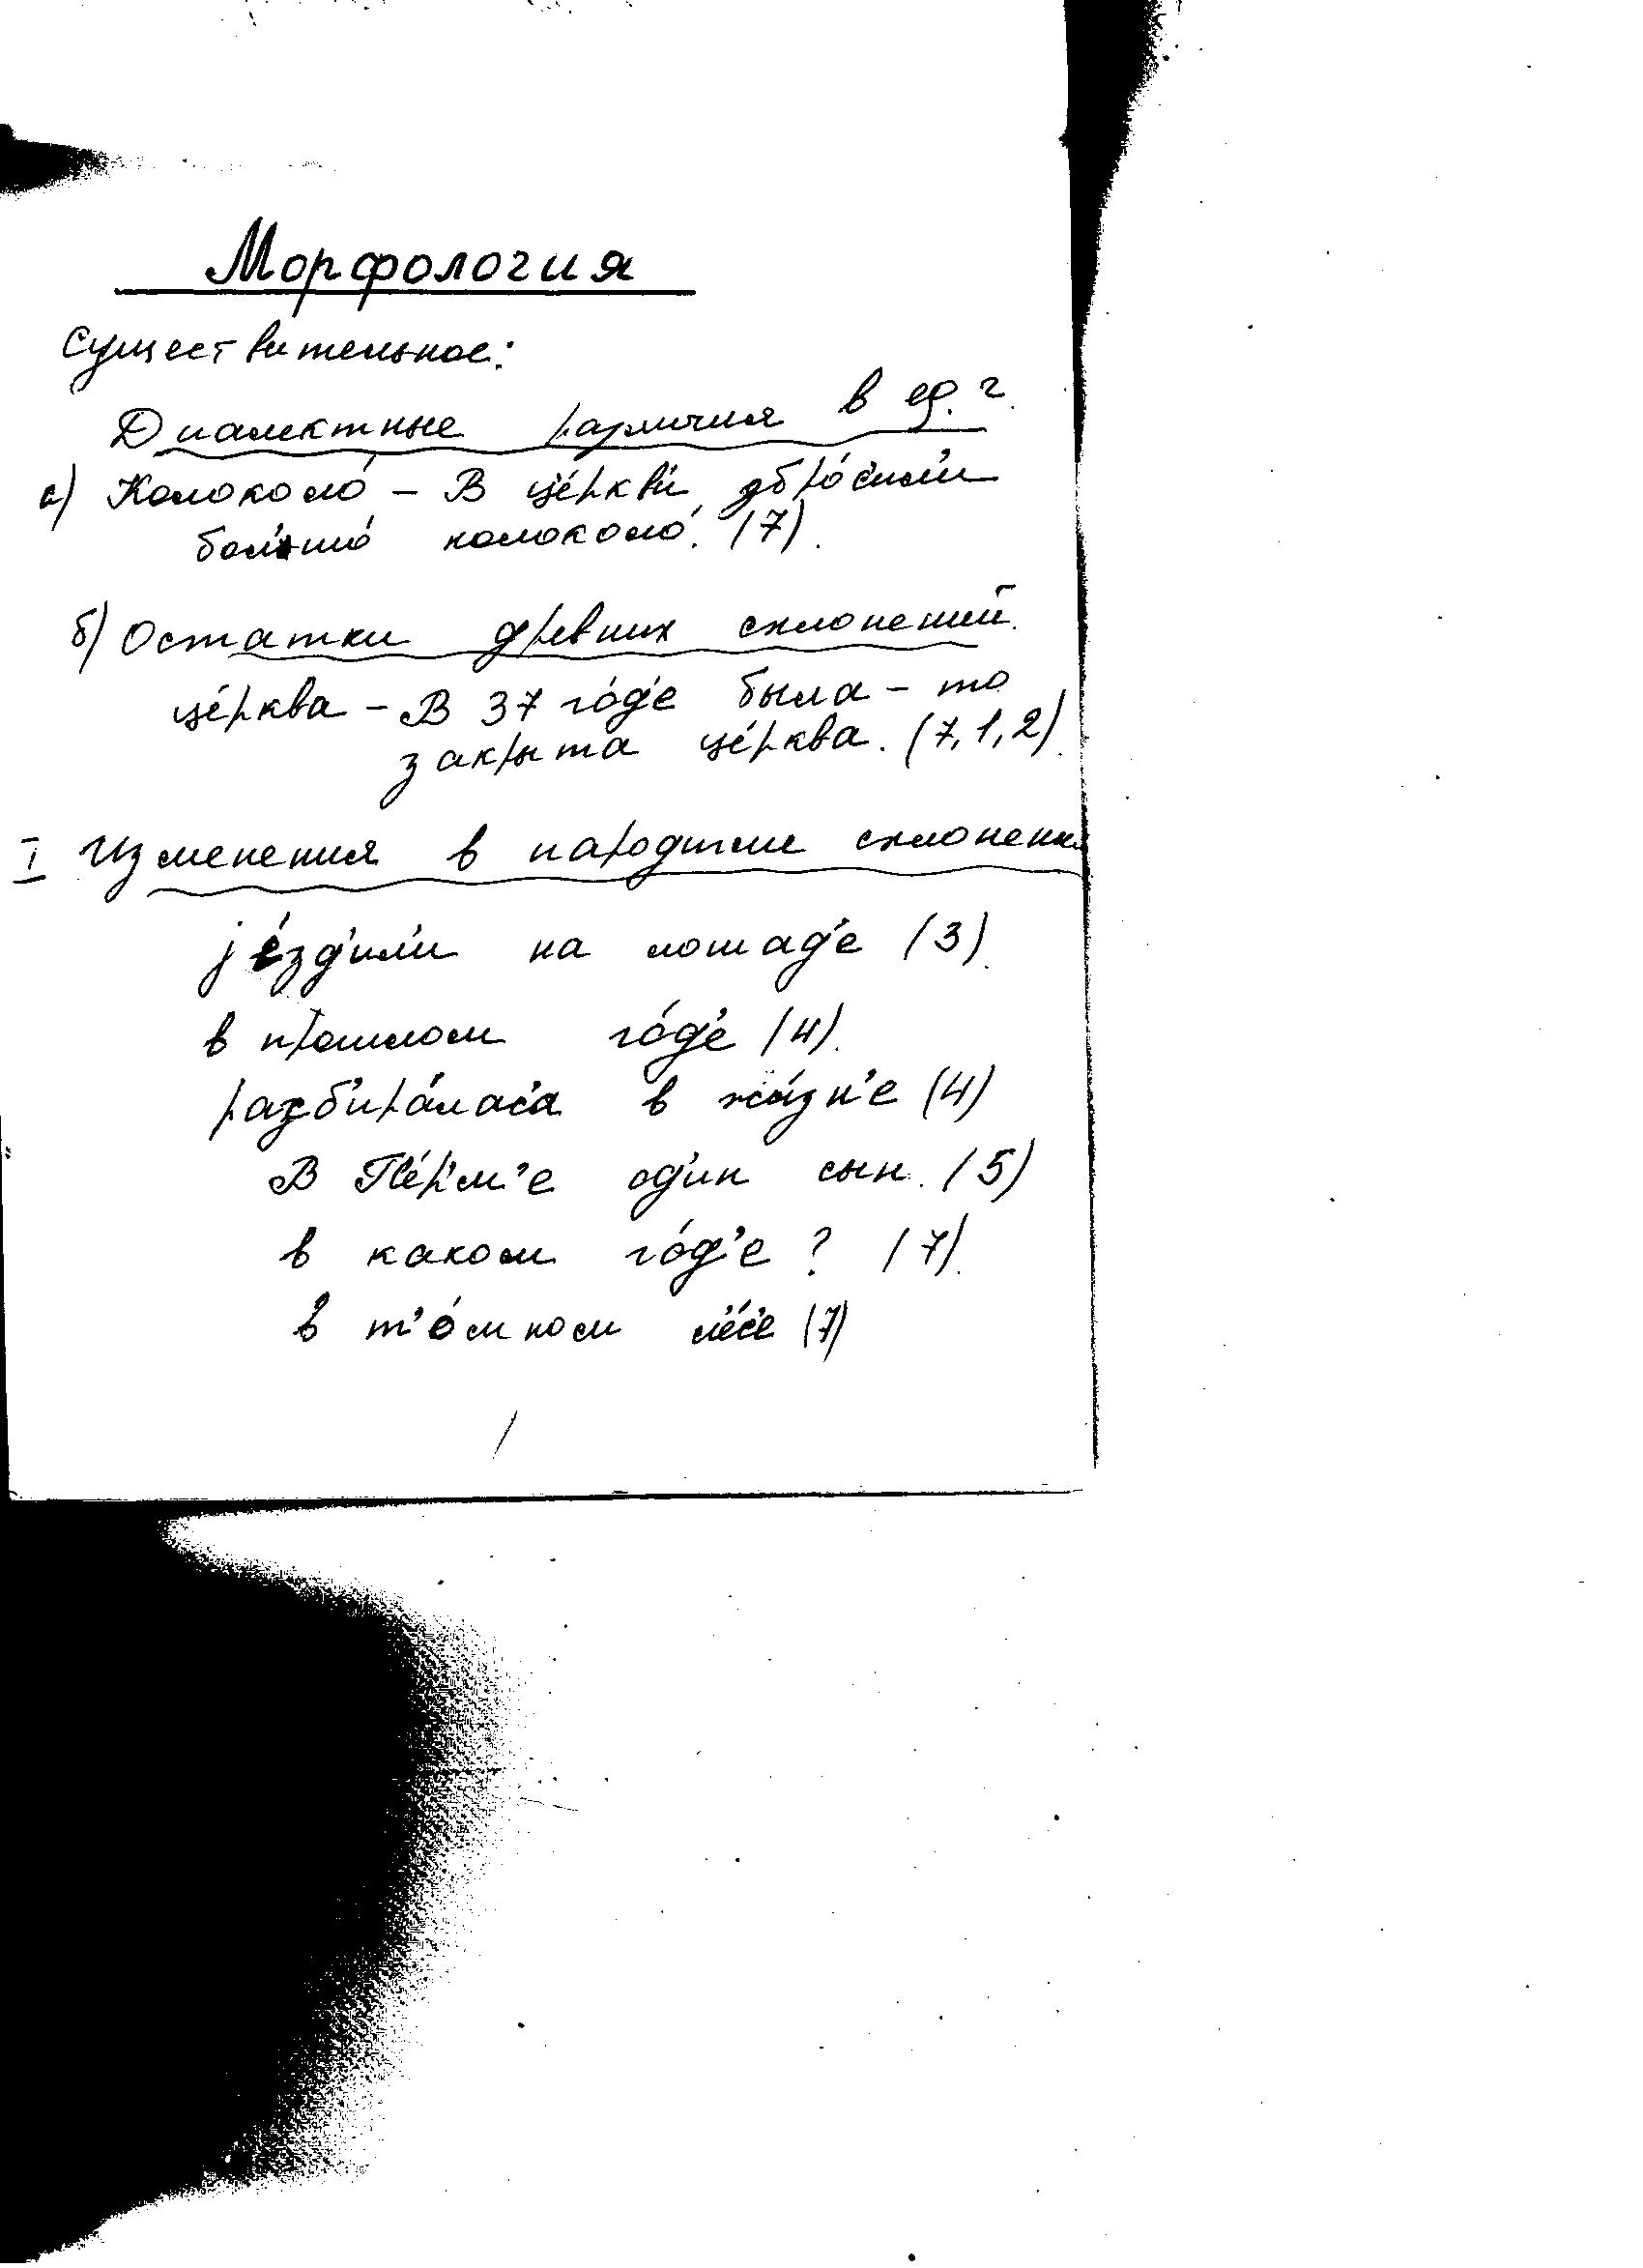 Морфология
Существительное:
Диалектные различия в ед. ч.
а) Колоколо́ – В це́ркв'и сбро́с'ил'и
бол'шо́ колоколо́. (7).
б) Остатки древних склонений.
це́рква – В 37 го́д'е была – то
закрыта це́рква. (7, 1, 2).
I Изменения в парадигме склонения
jе́зд'ил'и на лошад'е (3).
в прошлом го́д'е (4).
разб'ира́лас'а в жы́зн'е (4)
В Пе́р'м'е од'ин сын. (5)
в каком го́д'е? (7).
в т'о́мном л'е́с'е (7)